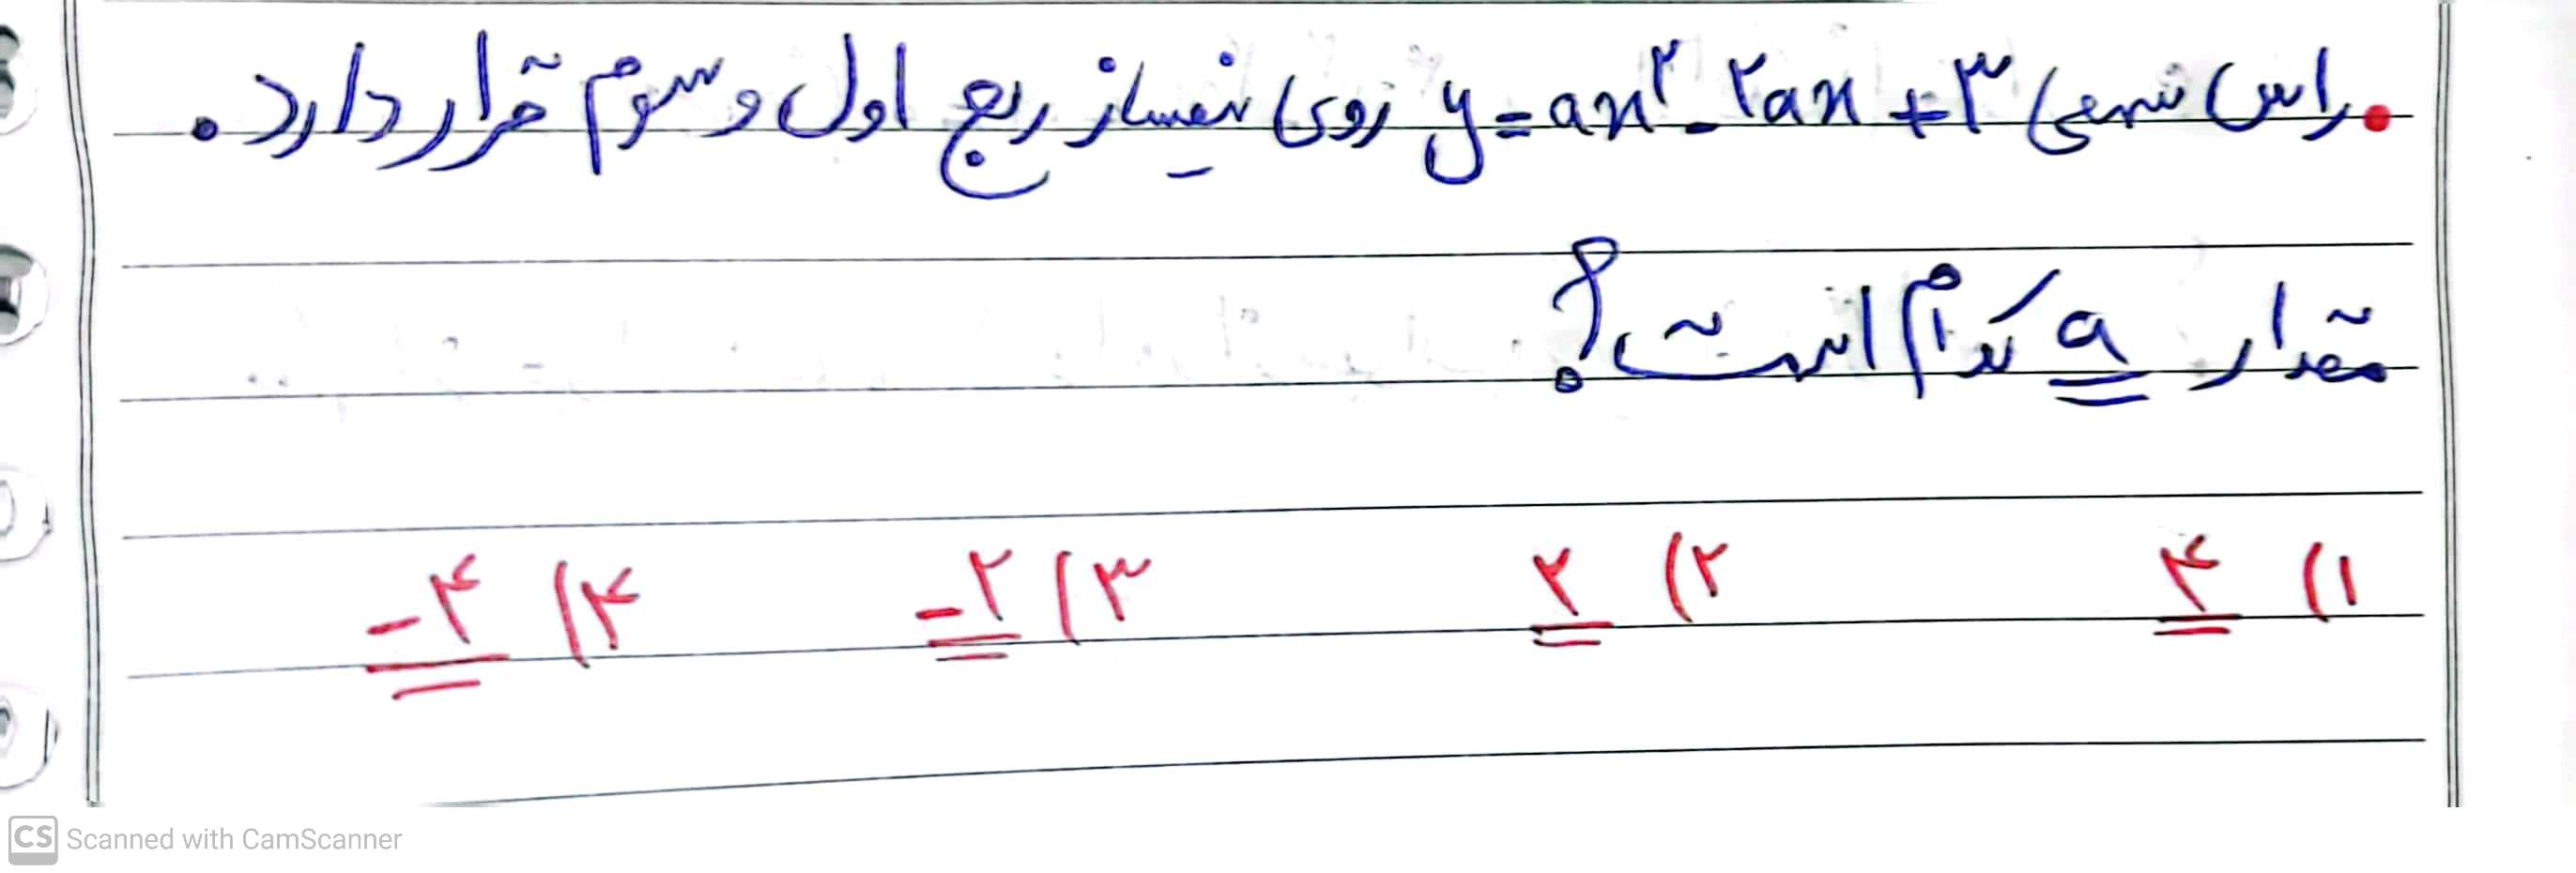 راس سهمی y = ax² - ۲ax + ۳ روی نیمساز ربع اول و سوم قرار دارد.
مقدار a کدام است؟
۱) ۴ ۲) ۲ ۳) -۲ ۴) -۴
CS Scanned with CamScanner